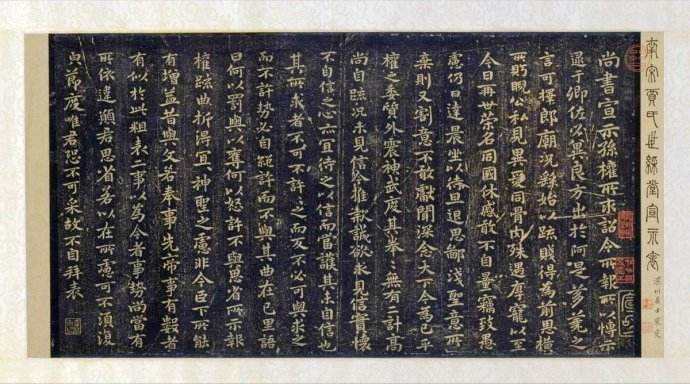 南宋賈氏世綵堂宣示表
尚書宣示孫權所求詔令所報所以博示
逮于卿佐必冀良方出於阿是芻蕘之
言可擇郎廟況繇始以疏賤得為前恩橫
所眄睨公私見異愛同骨肉殊遇厚寵以至
今日再世榮名同國休慼敢不自量竊致愚
慮仍日達晨坐以待旦退思鄙淺聖意所
棄則又割意不敢獻聞深念天下今為已平
權之委質外震神武度其拳拳無有二計高
尚自疏況未見信今推款誠欲求見信實懷
不自信之心亦宜待之以信而當護其未自信也
其所求者不可不許許之而反不必可與求之
而不許勢必自絕許而不與其曲在己里語
曰何以罰與以奪何以怒許不與思省所示報
權疏曲折得宜宜神聖之慮非今臣下所能
有增益昔與文若奉事先帝事有數者
有似於此粗表二事以為今者事勢尚當有
所依違願君思省若以在所慮可不須復
白節度唯君恐不可采故不自拜表